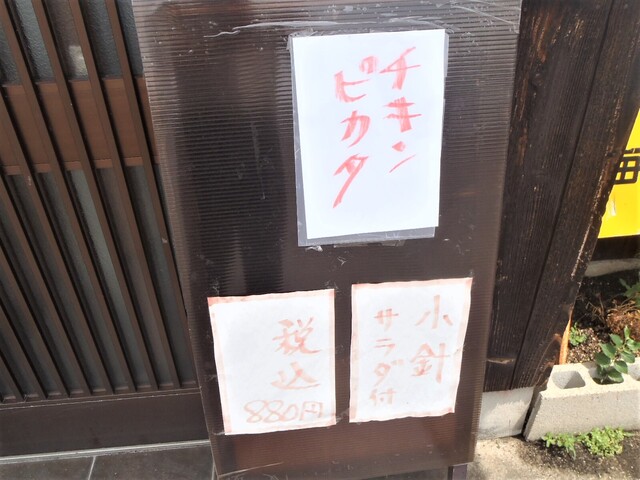 チキン
ピカタ
小針
サラダ付
税込
880円